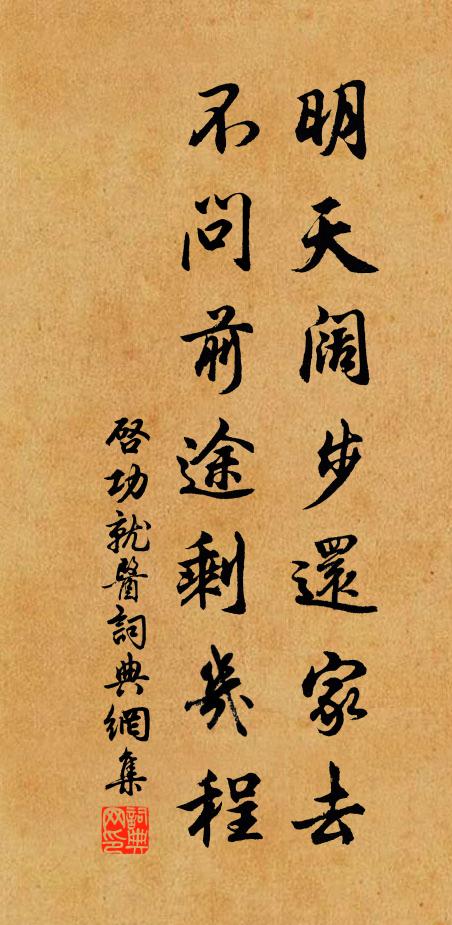 明天阔步還家去
不問前途剩幾程
啓功就醫詞典網集
詞典网印